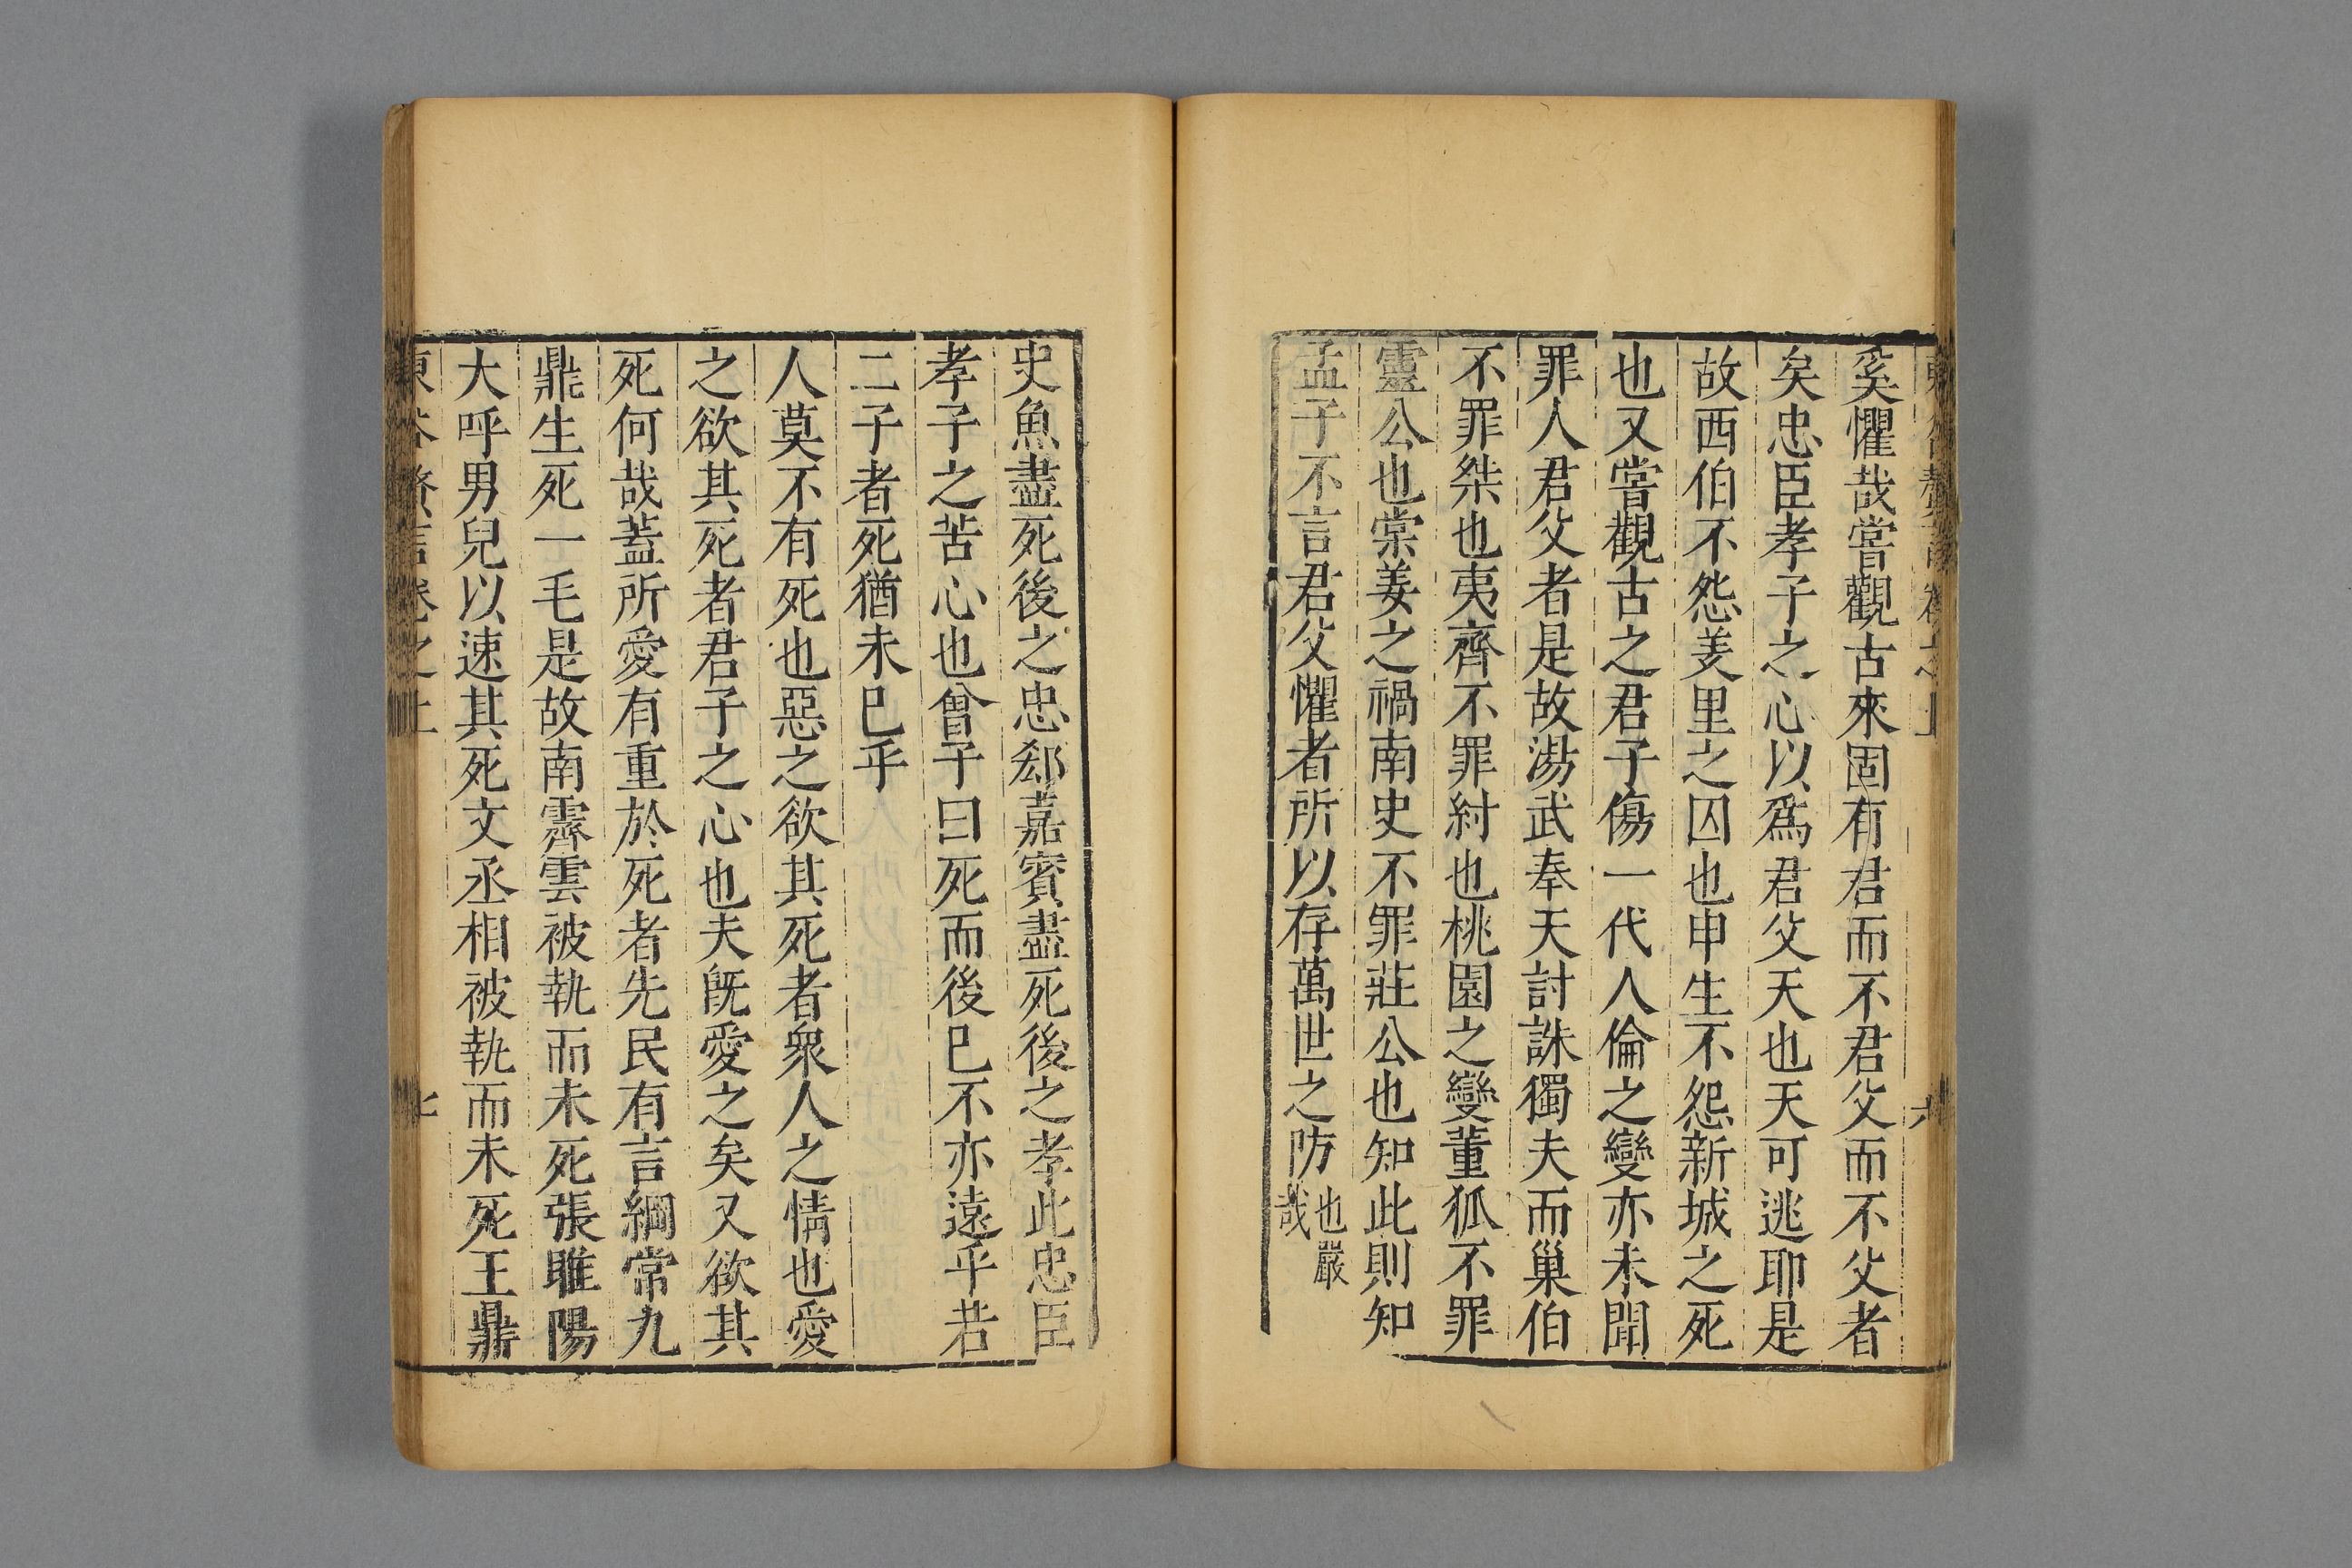 奚懼哉嘗觀古來固有君而不君父而不父者
矣忠臣孝子之心以爲君父天也天可逃耶是
故西伯不怨羑里之囚也申生不怨新城之死
也又嘗觀古之君子傷一代人倫之變亦未聞
罪人君父者是故湯武奉天討誅獨夫而巢伯
不罪桀也夷齊不罪紂也桃園之變董狐不罪
靈公也棠姜之禍南史不罪莊公也知此則知
孟子不言君父懼者所以存萬世之防也嚴哉
史魚盡死後之忠郄嘉賓盡死後之孝此忠臣
孝子之苦心也曾子曰死而後已不亦遠乎若
二子者死猶未已乎
人莫不有死也惡之欲其死者衆人之情也愛
之欲其死者君子之心也夫旣愛之矣又欲其
死何哉蓋所愛有重於死者先民有言綱常九
鼎生死一毛是故南霽雲被執而未死張睢陽
大呼男兒以速其死文丞相被執而未死王鼎